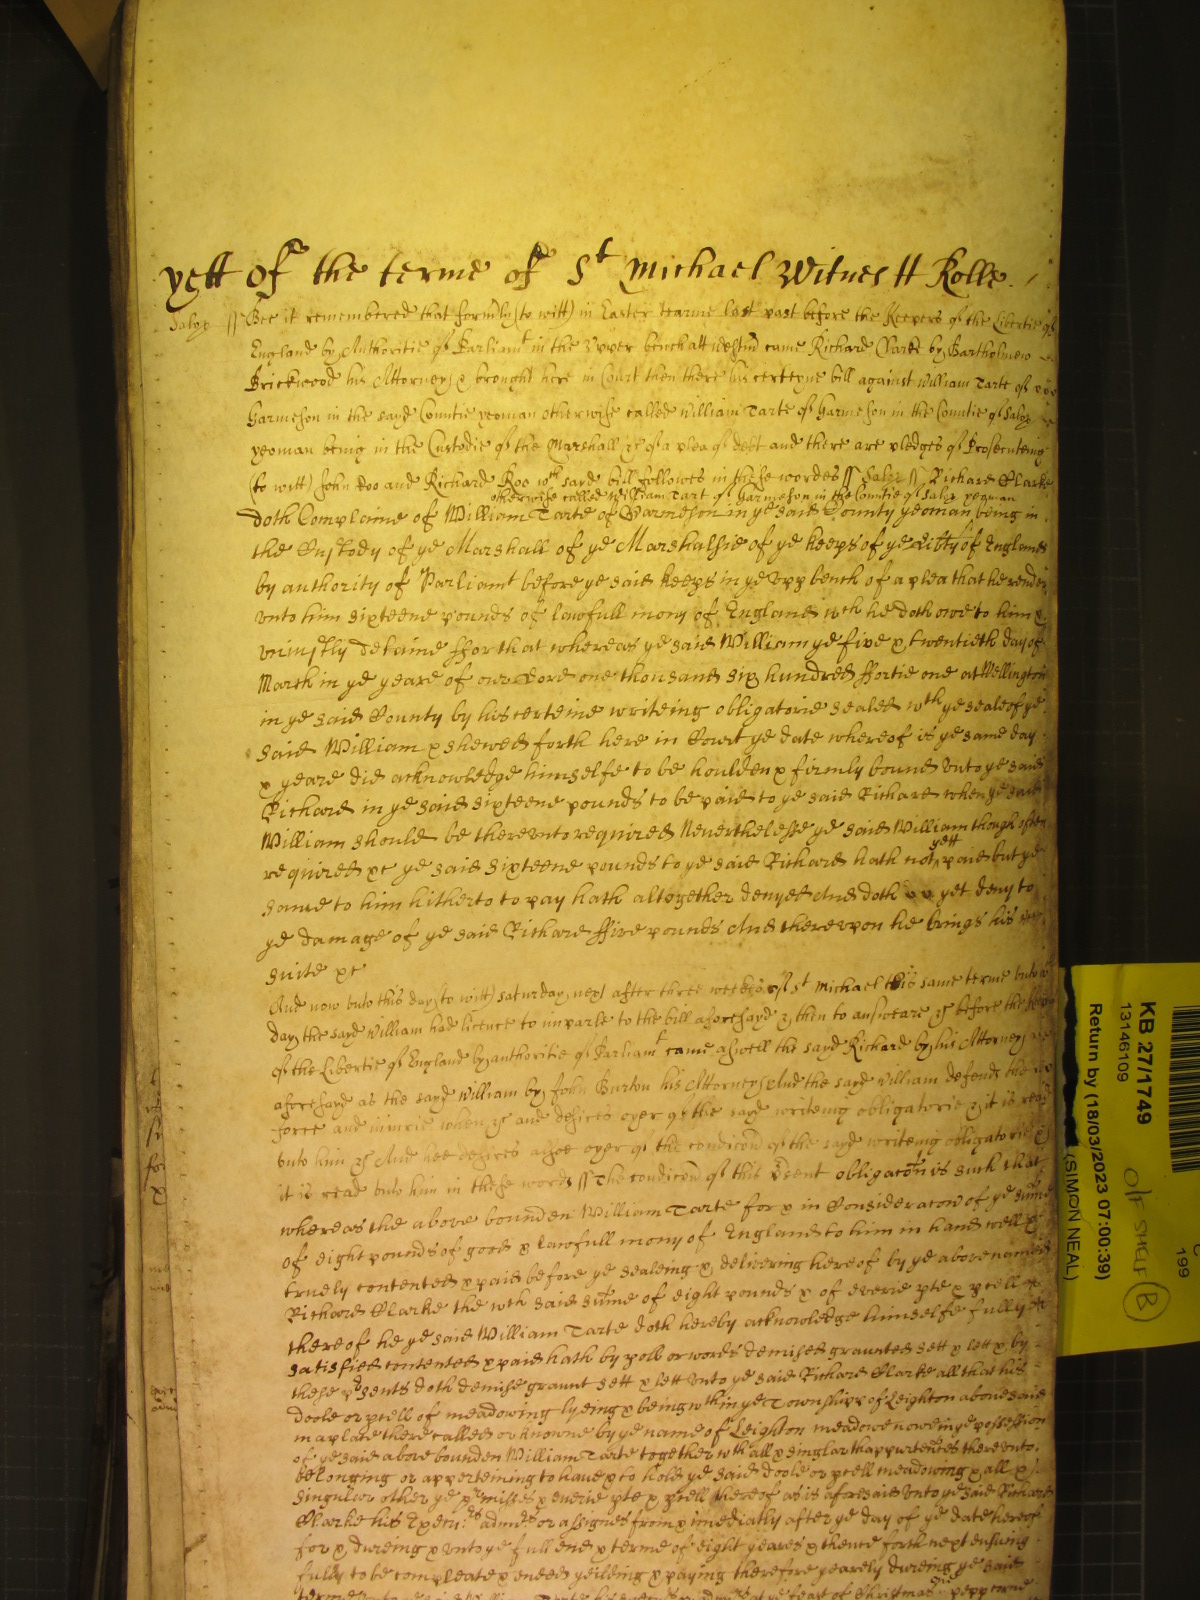 yett Of the terme of St Michael Witnes tt Rolle
Salop ss Bee it remembered that form'ly (to witt) in Easter tearme last past before the Keepers of the Libertie of
England by Authoritie of Parliamt in the Upper bench att Westm' came Richard Clarke by Bartholmew
Brickwood his Attorney & brought here in Court then there his certeyne bill against William Tarte of
Garmeson in the sayd Countie yeoman otherwise called William Tarte of Garmeson in the Countie of Salop
yeoman being in the Custodie of the Marshall &c of a plea of debt and there are pledges of Prosecuteing
(to witt) John Doo and Richard Roo wch sayd bill followes in these wordes ss Salop ss Richard Clarke
otherwise called William Tart of Garmeson in the Countie of Salop yeoman
doth Complaine of William Tarte of Garmeson in ye said County yeoman being in
the Custody of ye Marshall of ye Marshalsie of ye keeps of ye Lib'ty of England
by authority of Parliamt before ye said keeps in ye upp bench of a plea that he render
unto him sixteene pounds of lawfull mony of England wch he doth owe to him &
uniustly detaine ffor that whereas ye said William ye five & twentieth day of
March in ye yeare of our Lord one thousand six hundred ffortie one at Wellington
in ye said County by his certeine writeing obligatorie sealed wth ye seale of ye
said William & shewed forth here in Court ye date whereof is ye same day
& yeare did acknowledge himselfe to be houlden & firmly bound unto ye said
Richard in ye said sixteene pounds to be paid to ye said Richard when ye said
William should be thereunto required Neverthelesse ye said William though often
yett
required &c ye said sixteene pounds to ye said Richard hath not paid but ye
same to him hitherto to pay hath altogether denyed And doth yet deny to
ye damage of ye said Richard ffive pounds And thereupon he brings his
suite &c
And now unto this day (to witt) saturday next after three weekes of St Michael this same terme untill wch
day the sayd William had licence to imparle to the bill aforesayd & then to answeare &c before the keepers
of the Libertie of England by authoritie of Parliamt came aswell the sayd Richard by his Attorney
aforesayd as the sayd William by John Burton his Attorney And the sayd William defends the
force and iniurie when &c and desires oyer of the sayd writeing obligatorie & it is read
unto him &c And hee desires alsoe oyer of the condicon of the sayd writeing obligatorie &
it is read unto him in these words ss The condicon of this p'sent obligacon is such that
whereas the above bounden William Tarte for & in Consideracon of ye sume
of eight pounds of good & lawfull mony of England to him in hand well &
truely contented & paid before ye sealeing & delivering hereof by ye abovenamed
Richard Clarke the wch said sume of eight pounds & of everie pte & pcell
thereof he ye said William Tarte doth hereby acknowledge himselfe fully
satisfied contented & paid hath by poll or words demised graunted sett & lett & by
these p'sents doth demise graunt sett & lett unto ye said Richard Clarke all that his
doole or pcell of meadowing lyeing & being wthin ye Townshipp of Leighton abovesaid
in a place there called or knowne by ye name of Leighton meadowe nowe in ye possession
of ye said above bounden William Tarte together wth all & singlar thappurtences thereunto
belonging or apperteining to have & to hold ye said doole or pcell meadowing & all &
singular other ye p'misses & everie pte & pcell thereof as is aforesaid unto ye said Richard
Clarke his Execu'rs admrs or assignes from & imediatly after ye day of ye date hereof
for & dureing & unto ye full end & terme of eight yeares & thence forth next ensuing
fully to be compleate & ended yeilding & paying therefore yearely dureing ye said
at ye feast of Christmas one pepp corne
KB 27/1749
13146109
Return by (18/03/2023 07:00:39)
(SIMON NEAL)
Off Shelf B
199